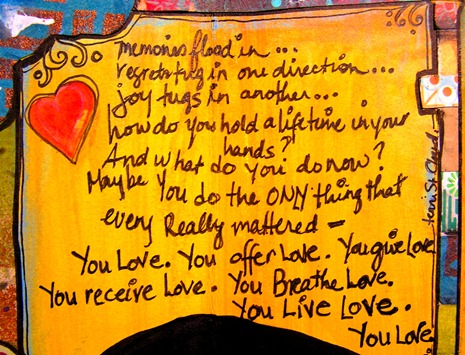 memories flood in ...
regrets tug in one direction...
joy tugs in another...
how do you hold a lifetime in your
hands?
And what do you do now?
Maybe You do the ONLY thing that
every Really mattered –
You Love. You offer Love. You give Love
You receive Love. You Breathe Love.
You Live Love.
You Love